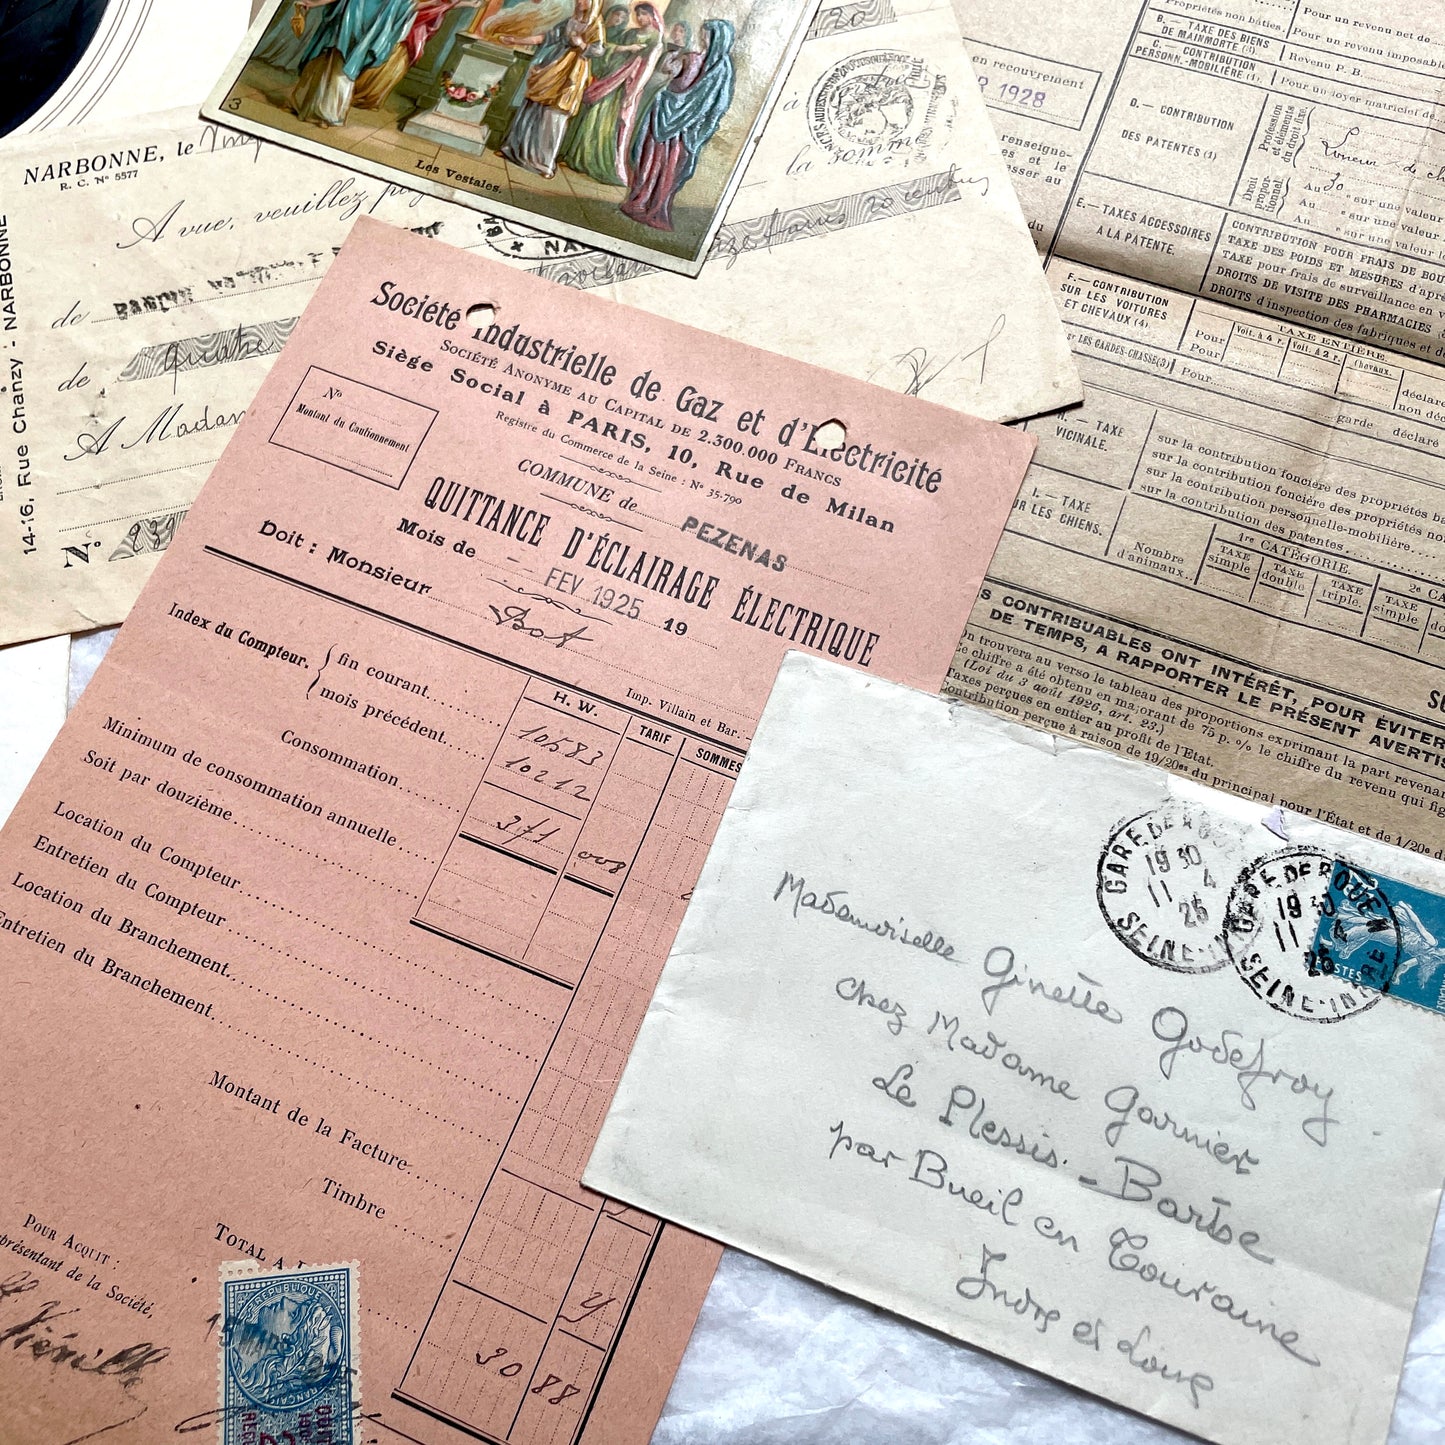 3
Les Vestales.
NARBONNE, le
R. C. Nº 5577
A vue, veuillez
la somme
de
de quatre
A Madam
14-16, Rue Chanzy - NARBONNE
Nº 839
Société Industrielle de Gaz et d'Electricité
Société Anonyme au Capital de 2.300.000 Francs
Siège Social à PARIS, 10, Rue de Milan
Registre du Commerce de la Seine : Nº 35.790
Nº
Montant du Cautionnement
COMMUNE de PEZENAS
QUITTANCE D'ÉCLAIRAGE ÉLECTRIQUE
Mois de FEV 1925 19
Doit : Monsieur Bot
Imp. Villain et Bar
H. W. TARIF SOMMES
Index du Compteur. { fin courant 10583
mois précédent 10212
Consommation 371
008
Minimum de consommation annuelle
Soit par douzième
Location du Compteur
Entretien du Compteur
Location du Branchement
Entretien du Branchement
Montant de la Facture
Timbre
TOTAL A
30 88
Pour Acquit :
présentant de la Société,
REPUBLIQUE
FRANÇAI
en recouvrement
1928
renseigne-
et le
esser au
Propriétés non bâties. Pour un revenu net de
B. — TAXE DES BIENS
DE MAINMORTE (3) Pour un revenu imposable
Revenu P. B.
C. — CONTRIBUTION
PERSONN.-MOBILIÈRE (1). Pour un loyer matriciel de
D. — CONTRIBUTION
DES PATENTES (1)
Profession
et éléments
du droit fixe. Loueur de ch
Droit
propor-
tionnel Au 30 " sur une valeur
Au " sur une valeur
Au " sur une valeur l
E. — TAXES ACCESSOIRES
A LA PATENTE.
CONTRIBUTION POUR FRAIS DE BOU
TAXE DES POIDS ET MESURES d'apr
TAXE pour frais de surveillance en v
DROITS DE VISITE DES PHARMACIES
DROITS d'inspection des fabriques et d
F. — CONTRIBUTION
SUR LES VOITURES
ET CHEVAUX (4).
Pour
Pour
TAXE ENTIÈRE.
Voit. à 4 r. Voit. à 2 r. Chevaux.
déclaré
non déc
R LES GARDES-CHASSE(3) Pour garde déclaré
TAXE
VICINALE.
sur la contribution foncière des propriétés ba
sur la contribution foncière des propriétés no
sur la contribution personnelle-mobilière
sur la contribution des patentes
I. — TAXE
UR LES CHIENS.
Nombre
d'animaux
1re CATÉGORIE.
TAXE simple TAXE double TAXE triple.
2e CA
TAXE simple
S CONTRIBUABLES ONT INTÉRÊT, POUR ÉVITER
DE TEMPS, A RAPPORTER LE PRÉSENT AVERTIS
On trouvera au verso le tableau des proportions exprimant la part revenan
Ce chiffre a été obtenu en majorant de 75 p. % le chiffre du revenu qui fig
(Loi du 3 août 1926, art. 23.)
Taxes perçues en entier au profit de l'Etat.
Contribution perçue à raison de 19/20es du principal pour l'État et de 1/20e d
GARE DE ROUEN
19 30
11 4
25
SEINE-INFRE
GARE DE ROUEN
19 30
11 4
SEINE-INFRE
POSTES
Mademoiselle Ginette Godefroy
chez Madame Garnier
Le Plessis - Bartse
par Bueil en Touraine
Indre et Loire